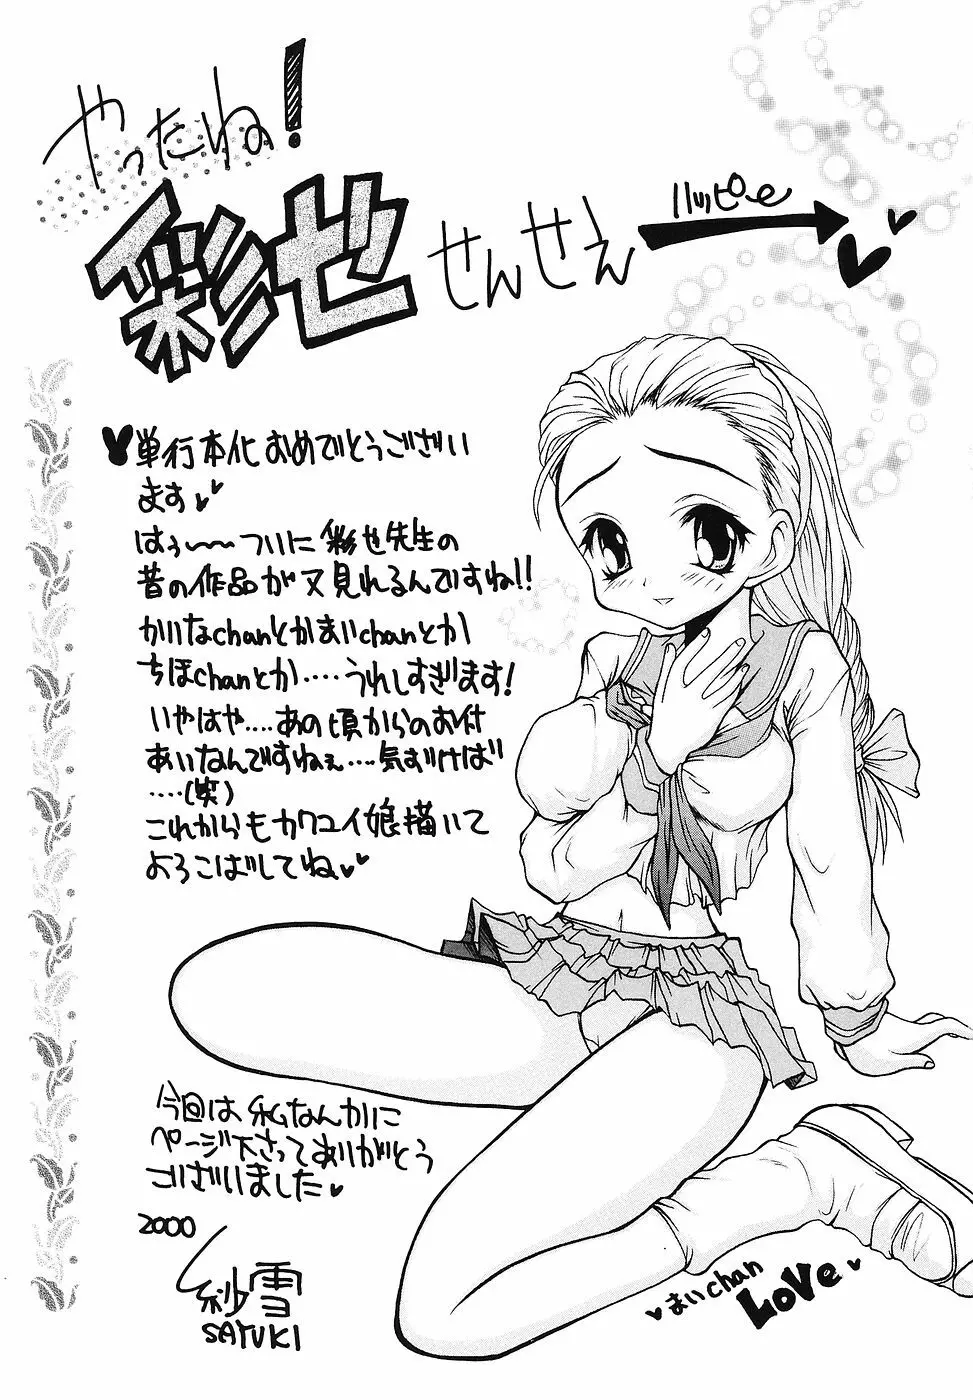 やったね!
彩世せんせえ
ハッピー
単行本化おめでとうござい
ます
はぅ〜〜ついに彩世先生の
昔の作品が又見れるんですね!!
かいなchanとかまいchanとか
ちほchanとか‥‥うれしすぎます!
いやはや‥‥あの頃からのお付
あいなんですねぇ‥‥気づけば
‥‥(笑)
これからもカワユイ娘描いて
よろこばしてね
今回は私なんかに
ページ下さってありがとう
ございました
2000
紗雪
SAYUKI
まいchan
LoVe